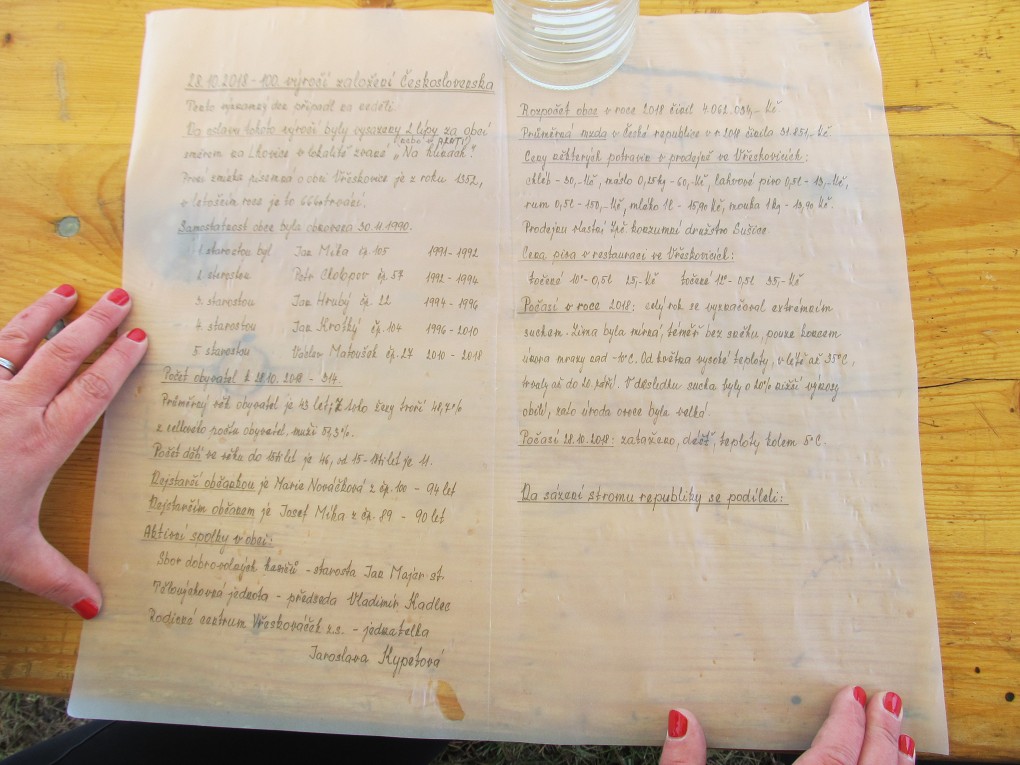 28.10.2018 - 100. výročí založení Československa
Tento významný den připadl na neděli.
Na oslavu tohoto výročí byly vysazeny 2 lípy za obcí
směrem na Lhovice v lokalitě zvané „Na hlinách".
První zmínka písemná o obci Vřeskovice je z roku 1352,
v letošním roce je to 666 trvání.
Samostatnost obce byla obnovena 30.11.1990.
1. starostou byl Jan Mika čp. 105 1991 - 1992
2. starostou Petr čp. 57 1992 - 1994
3. starostou Jan Hrubý čp. 22 1994 - 1996
4. starostou Jan Krotký čp. 104 1996 - 2010
5. starostou Václav Matoušek čp. 27 2010 - 2018
Počet obyvatel k 28.10. 2018 - 314.
Průměrný věk obyvatel je 43 let, z toho ženy tvoří 48,7%
z celkového počtu obyvatel, muži 51,3%.
Počet dětí ve věku do 15ti let je 46, od 15 - 18ti let je 11.
Nejstarší občankou je Marie Nováčková z čp. 100 - 94 let
Nejstarším občanem je Josef Mika z čp. 89 - 90 let
Aktivní spolky v obci:
Sbor dobrovolných hasičů - starosta Jan Majer st.
Tělovýchovná jednota - předseda Vladimír Kadlec
Rodinné centrum Vřeskováček z.s. - jednatelka
Jaroslava Kypetová
Rozpočet obce v roce 2018 činil 4.062.034,- Kč
Průměrná mzda v České republice v r. 2018 činila 31.851,- Kč.
Ceny některých potravin v prodejně ve Vřeskovicích:
chléb - 30,- Kč, máslo 0,25kg - 60,- Kč, lahvové pivo 0,5l - 13,- Kč,
rum 0,5l - 150,- Kč, mléko 1l - 15,90 Kč, mouka 1kg - 13,90 Kč.
Prodejnu vlastní Zpč. konzumní družstvo Sušice.
Cena piva v restauraci ve Vřeskovicích:
točené 10° - 0,5l 25,- Kč točené 12° - 0,5l 35,- Kč
Počasí v roce 2018: celý rok se vyznačoval extrémním
suchem. Zima byla mírná, téměř bez sněhu, pouze koncem
února mrazy nad -10°C. Od května vysoké teploty, v létě až 35°C,
trvaly až do 20. září. V důsledku sucha byly o 20% nižší výnosy
obilí, zato úroda ovoce byla velká.
Počasí 28.10.2018: zataženo, déšť, teploty kolem 5°C.
Na sázení stromu republiky se podíleli: